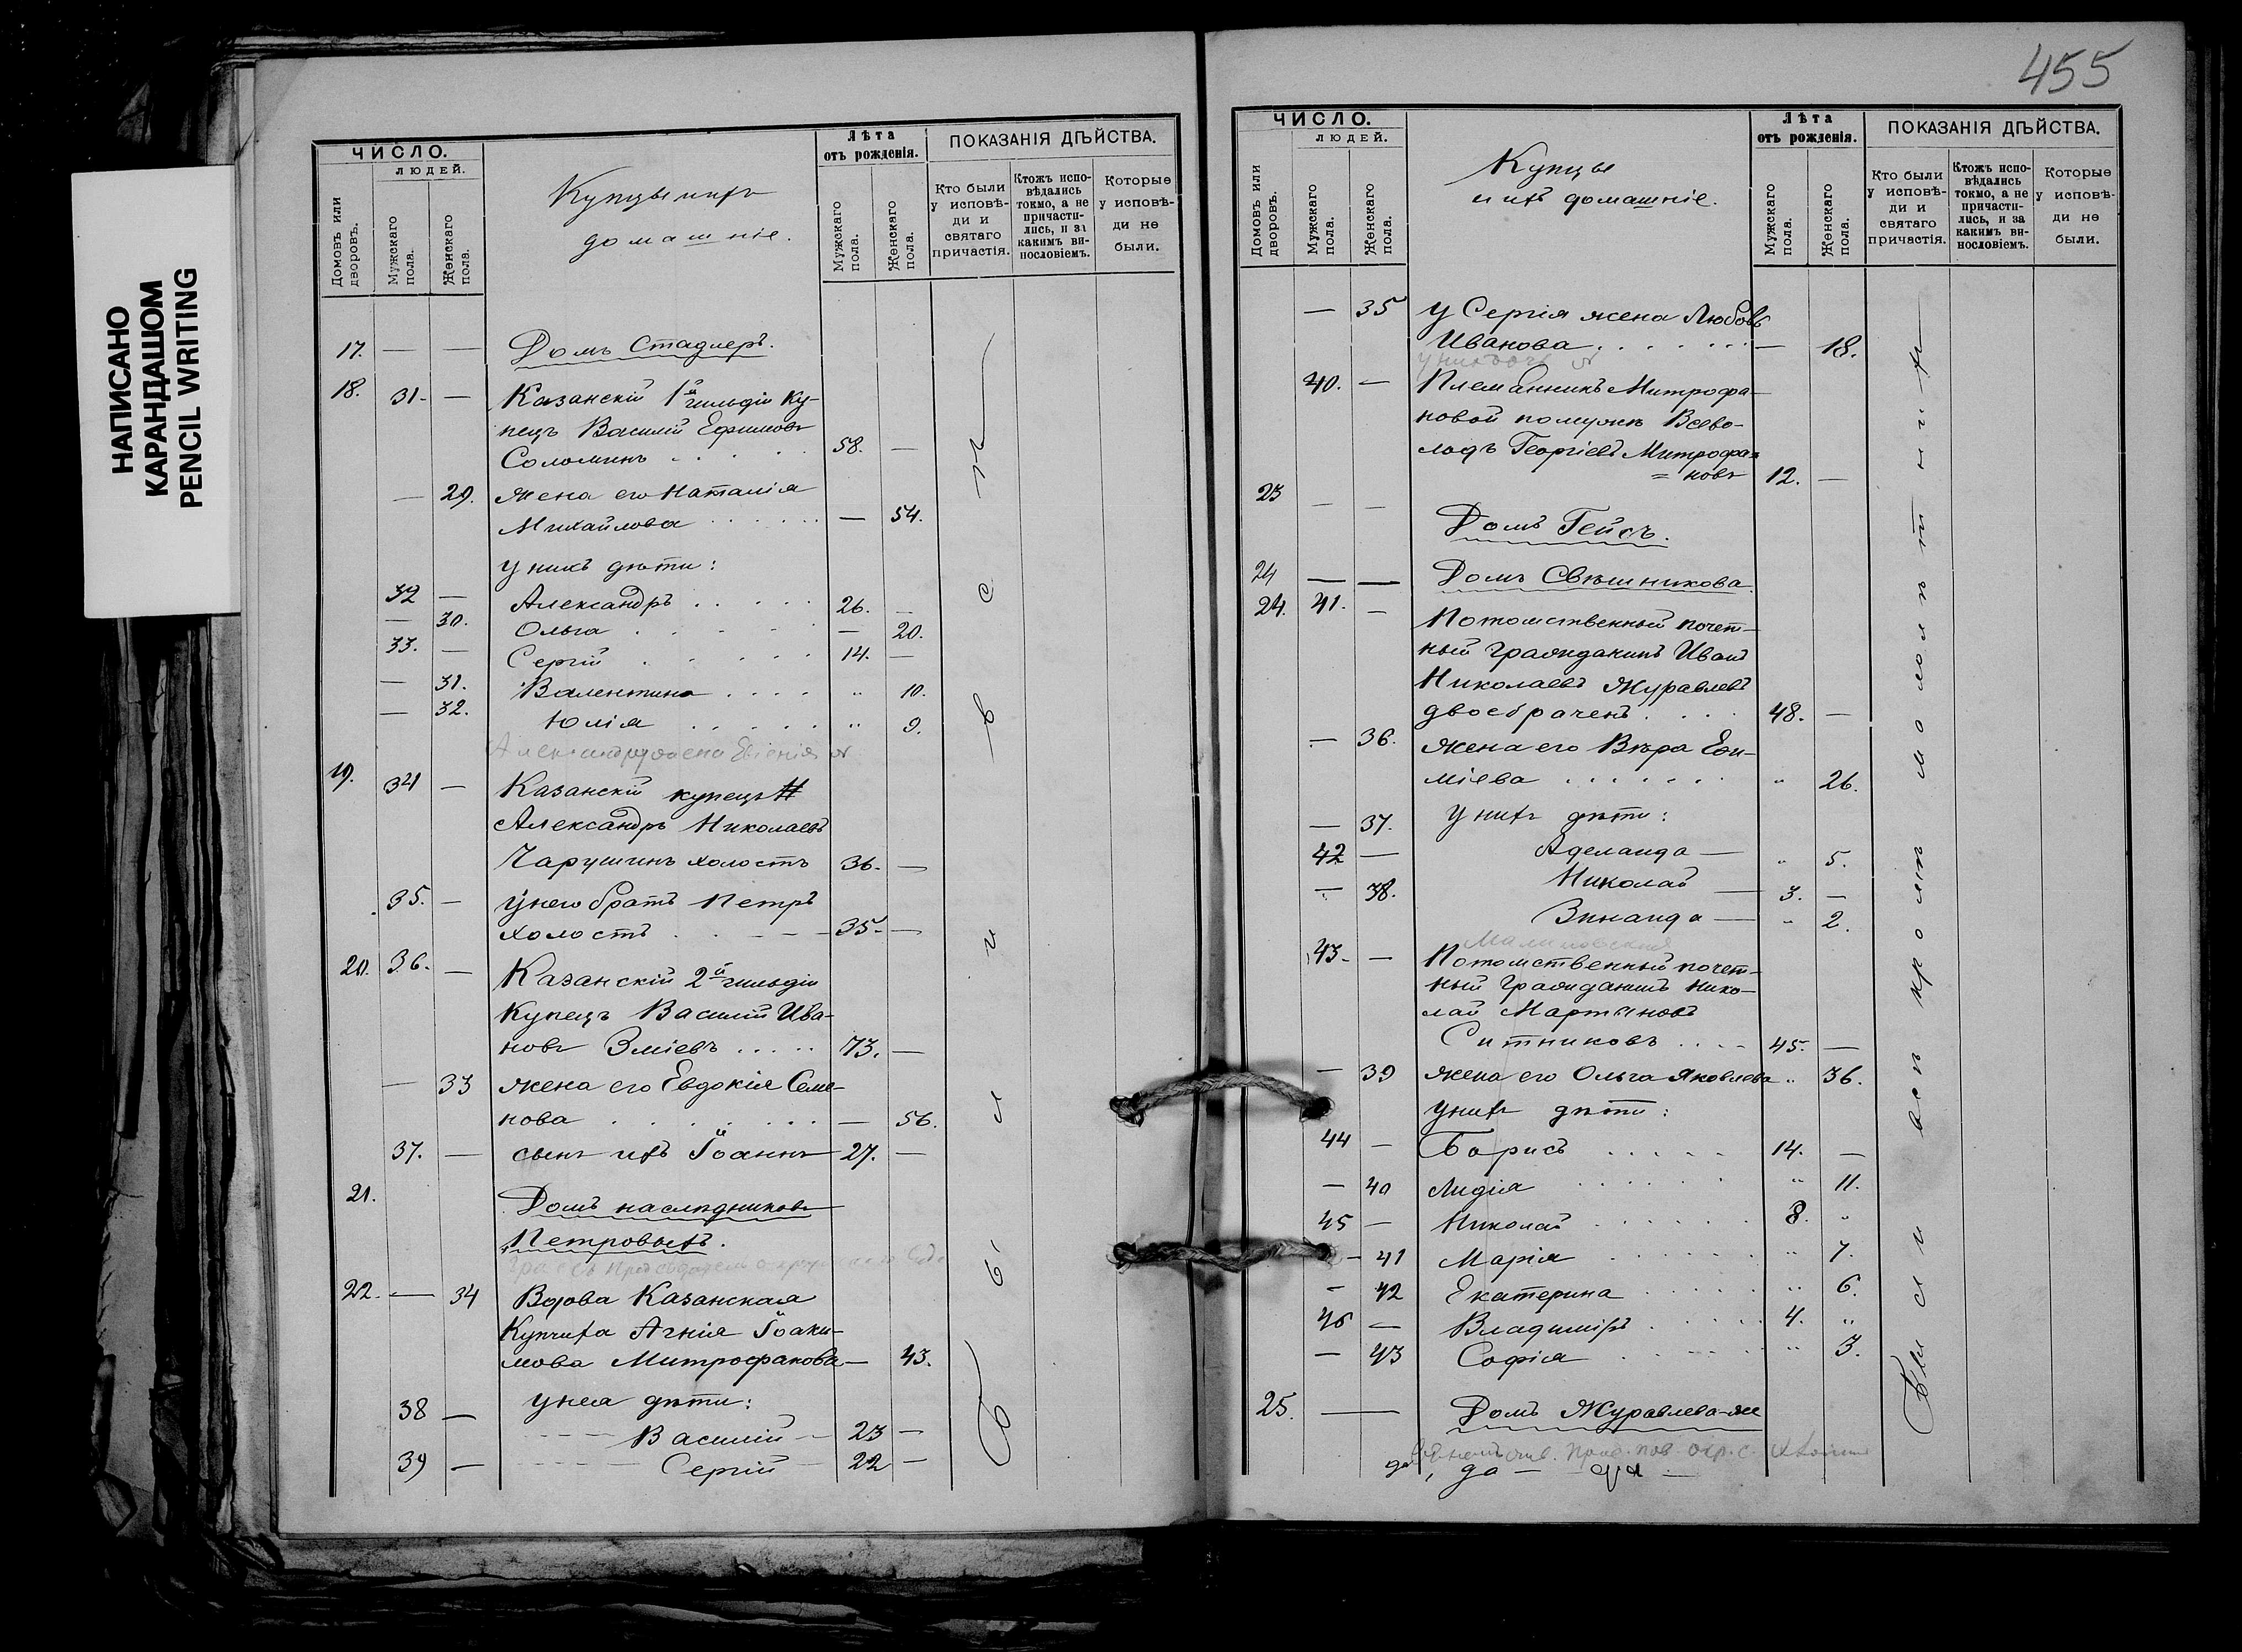 НАПИСАНО
КАРАНДАШОМ
PENCIL WRITING
ЧИСЛО.
ЛЮДЕЙ.
Домовъ или дворовъ.
Мужскаго пола.
Женскаго пола.
Купцы и ихъ
домашніе.
Лѣта
отъ рожденія.
Мужскаго пола.
Женскаго пола.
ПОКАЗАНІЯ ДѢЙСТВА.
Кто были у исповѣ-ди и святаго причастія.
Ктожъ испо-вѣдались токмо, а не причасти-лись, и за какимъ ви-нословіемъ.
Которые у исповѣ-ди не были.
17. — — Домъ Стадлеръ.
18. 31 — Казанскій 1й гильдіи Ку-
пецъ Василій Ефимовъ
Соломинъ 58. —
— 29. жена его Наталія
Михайлова — 54.
у нихъ дѣти:
32 — Александръ 26. —
— 30. Ольга — 20.
33. — Сергій 14. —
— 31. Валентина " 10.
— 32. Юлія " 9.
19. 34 — Казанскій купецъ
Александръ Николаевъ
Чарушинъ холостъ 36. —
35. — У него братъ Петръ
холостъ 35 —
20. 36. — Казанскій 2й гильдіи
Купецъ Василій Ива-
новъ Зміевъ 73. —
— 33 жена его Евдокія Семе-
нова — 56.
37. — сынъ ихъ Іоаннъ 27. —
21. Домъ наслѣдниковъ
Петровыхъ.
22. — 34 Вдова Казанская
Купчиха Агнія Іоаки-
мова Митрофанова — 43.
у нея дѣти:
38 — Василій 23 —
39 — Сергій 22 —
455
ЧИСЛО.
ЛЮДЕЙ.
Домовъ или дворовъ.
Мужскаго пола.
Женскаго пола.
Купцы
и ихъ домашніе.
Лѣта
отъ рожденія.
Мужскаго пола.
Женскаго пола.
ПОКАЗАНІЯ ДѢЙСТВА.
Кто были у исповѣ-ди и святаго причастія.
Ктожъ испо-вѣдались токмо, а не причасти-лись, и за какимъ ви-нословіемъ.
Которые у исповѣ-ди не были.
— 35 У Сергія жена Любовь
Иванова — 18.
40. — Племянникъ Митрофа-
новой по мужѣ Всево-
лодъ Георгіевъ Митрофа=
=новъ 12. —
23 — — Домъ Гейсъ.
24 — — Домъ Свѣшникова
24. 41. — Потомственный почет-
ный гражданинъ Иванъ
Николаевъ Журавлевъ
двоебраченъ 48. —
— 36. жена его Вѣра Ев-
міева " 26.
— 37. У нихъ дѣти:
42 — Аделаида — " 5.
— 38. Николай — 3. —
Зинаида — " 2.
43 — Потомственный почет-
ный Гражданинъ Нико-
лай Мартыновъ
Ситниковъ 45. —
— 39 жена его Ольга Яковлева " 36.
У нихъ дѣти:
44 — Борисъ 14. —
— 40 Лидія " 11.
45 — Николай 8. "
— 41 Марія " 7.
— 42 Екатерина " 6.
46 — Владиміръ 4. "
— 43 Софія " 3.
25. — Домъ Журавлева-же